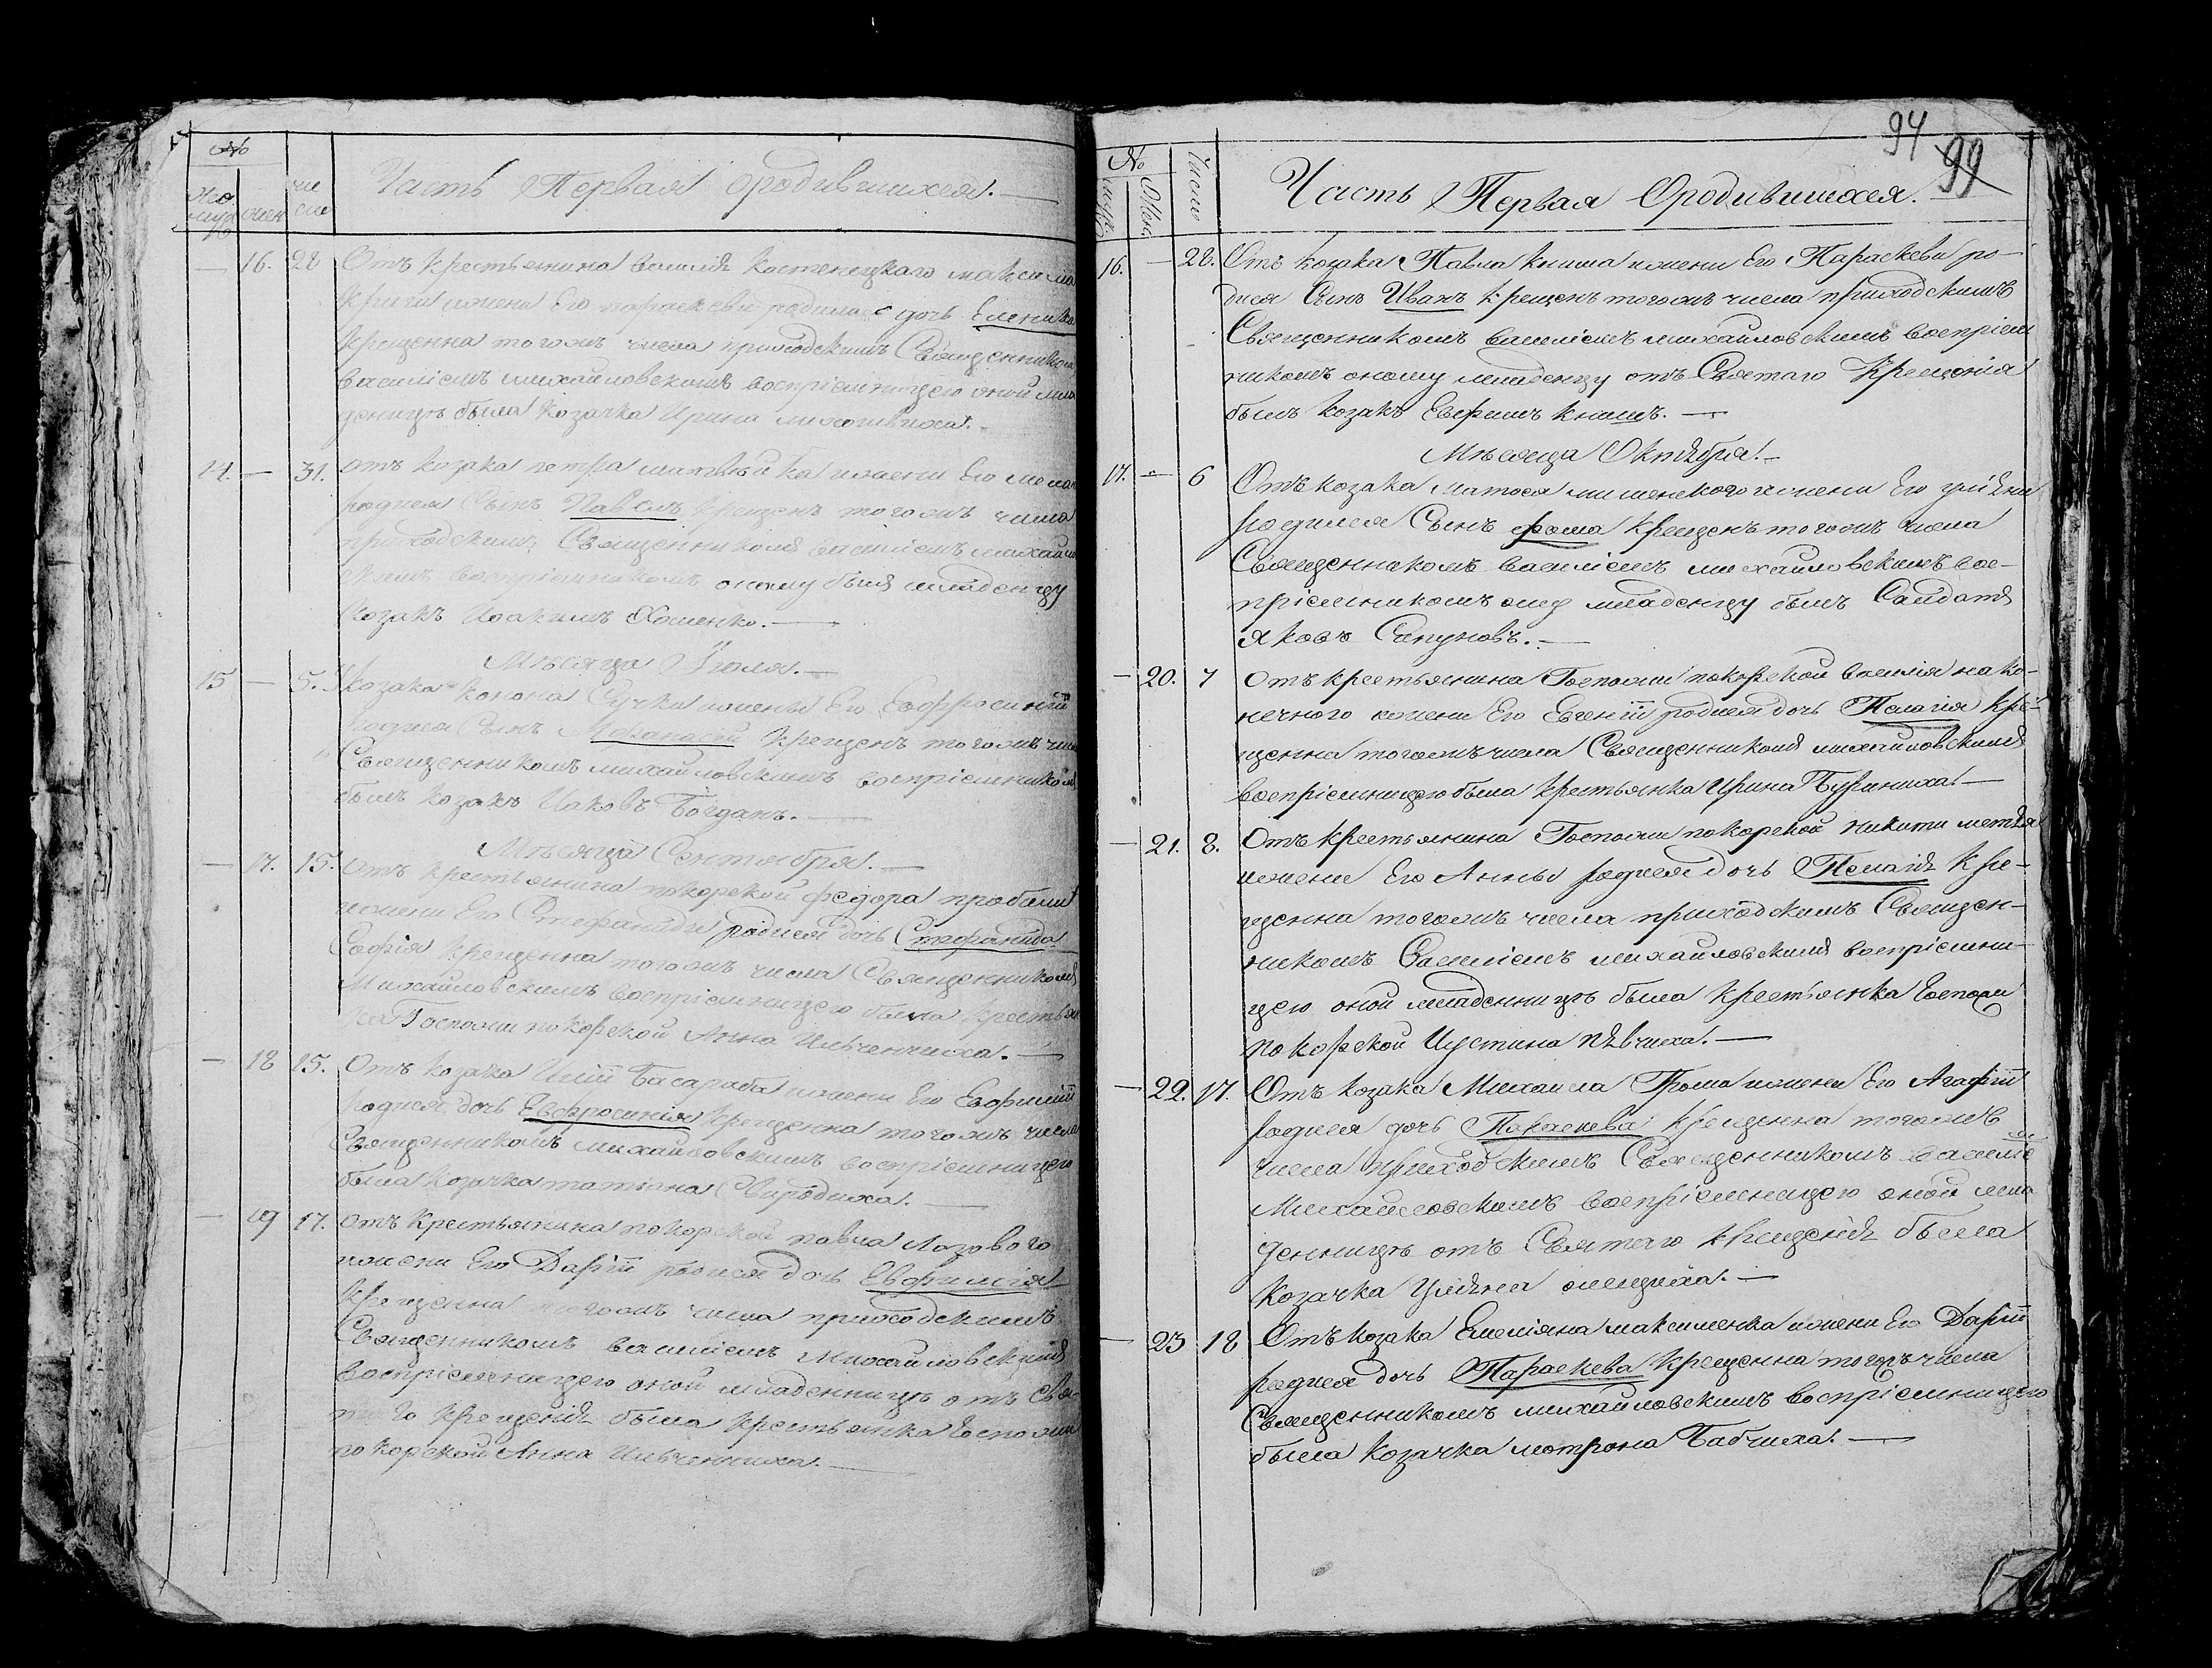 №
муж
жен
чи
сло
Часть Первая ородившихся.
— 16. 28 Отъ крестьянина василія костенецкаго максима
криги жени Его параскеви родилас дочь Еленика
крещенна тогожъ числа приходскимъ Священником
василіемъ михайловскимъ воспріемницею оной мла
денице была козачка Ирина
14. — 31. отъ козака петра жени Его
родися Сынъ Павелъ крещенъ тогожъ числа
приходскимъ Священникомъ василіемъ михайлов
скимъ воспріемникомъ оному былъ младенцу
козакъ Иоакимъ Хоменко.
Мѣсяца Іюля.
15 — 5. козака конона Сучка жены Его Евфросиніи
родися Сынъ Афанасій крещенъ тогожъ числ
Священникомъ михайловскимъ воспріемникомъ
былъ козакъ Иаковъ Богданъ.
Мѣсяца Сентября.
— 17. 15. Отъ крестьянина покорской федора
жени Его Стефаниды родися дочь Стефанида
Софія крещенна тогожъ числа Священникомъ
Михайловскимъ воспріемницею была крестьян
ка Госпожи покорской Анна Ильченчиха.
— 18 15. Отъ козака Иліи Басараба жени Его Евфиміи
родися дочь Евфросинія крещенна тогожъ числа
Священникомъ михайловскимъ воспріемницею
была козачка татіана Свиродиха.
— 19 17. отъ крестьянина покорской павла Лозового
жени Его Даріи родися дочь Евфимія
крещенна тогожъ числа приходскимъ
Священникомъ василіемъ Михайловскимъ
воспріемницею оной младенницѣ отъ Свя
таго крещенія была крестьянка Госпожи
покорской Анна Ильченчиха.
94
99
№
Муж.
Жен.
Число
Часть Первая Ородившихся.
16. — 28. Отъ козака Павла книша жени Его Параскеви ро-
дися Сынъ Иванъ крещенъ тогожъ числа приходскимъ
Священникомъ василіемъ михайловскимъ воспріем
никомъ оному младенцу отъ Святаго Крещенія
былъ козакъ Евфимъ книшъ.
Мѣсяца Октября.
17. — 6 Отъ козака матоея мишенского жени Его уліяни
родился Сынъ фома крещенъ тогожъ числа
Священникомъ василіемъ михайловскимъ вос-
пріемникомъ младенцу былъ Салдатъ
яковъ Сапуновъ.
— 20. 7 Отъ крестьянина Госпожи покорской василія нако-
нечного жени Его Евгеніи родися дочь Пелагія кре-
щенна тогожъ числа Священникомъ михайловскимъ
воспріемницею была крестьянка Ирина Буриниха.
— 21. 8. Отъ крестьянина Госпожи покорской никити
жени Его Анны родися дочь Пелагія Кре-
щенна тогожъ числа приходскимъ Священ-
никомъ Василіемъ михайловскимъ воспріемни-
цею оной младенницѣ была крестьянка Госпожи
покорской Иустина пѣвчиха.
— 22. 17. Отъ козака Михаила Грома жени Его Агафіи
родися дочь Параскева крещенна тогожъ
числа приходскимъ Священникомъ василіе
Михайловскимъ воспріемницею оной мла
денницѣ отъ Святаго крещенія была
козачка Уліяна
— 23 18 Отъ козака Емеліяна максименка жени Его Даріи
родися дочь Параскева крещенна тогожъ числа
Священникомъ михайловскимъ воспріемницею
была козачка мотрона Бабчиха.